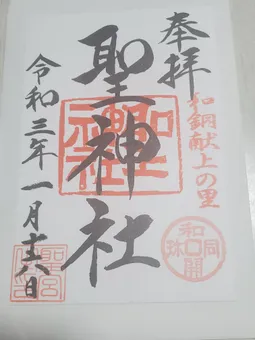 奉拝
和銅献上の里
和同開珎
聖神社
聖神社
令和三年一月十六日